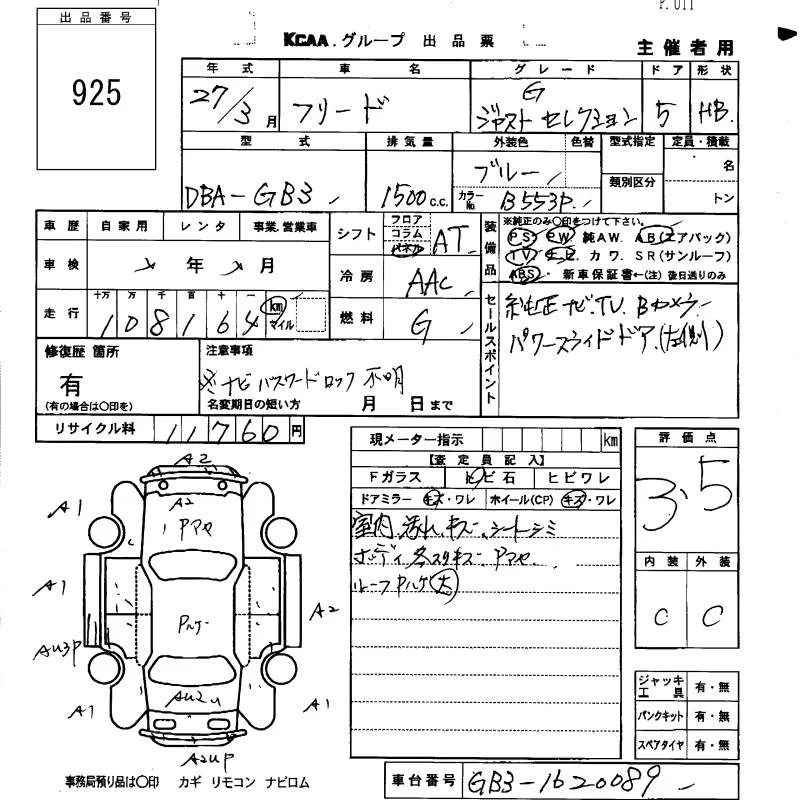 P.011
出品番号
925
KCAA.グループ 出品票
主催者用
年式 車名 グレード ドア 形状
27/3月 フリード G ジャスト セレクション 5 HB.
型式 排気量 外装色 色替 型式指定 定員・積載
DBA-GB3 1500c.c. ブルー
カラーNo. B553P
類別区分
名
トン
車歴 自家用 レンタ 事業.営業車
車検 年 月
走行 十万 万 千 百 十 一
108164 km マイル
シフト フロア コラム パネル AT
冷房 AAC
燃料 G
装備品
※純正のみ〇印をつけて下さい。
PS. PW. 純AW. AB(エアバック)
TV. ナビ. カワ. SR(サンルーフ)
ABS. 新車保証書←(注)後日送りのみ
セールスポイント
純正ナビ.TV. Bカメラ
パワースライドドア.(左側)
修復歴 箇所
有
(有の場合は〇印を)
注意事項
※ナビパスワードロック不明
名変期日の短い方 月 日まで
リサイクル料 11760円
現メーター指示 km
【査定員記入】
Fガラス 飛ビ石 ヒビワレ
ドアミラー キズ・ワレ ホイール(CP) キズ・ワレ
室内 汚れ.キズ.シートシミ
ボディ 各スリキズ.Pマヤ.
ルーフPハゲ(大)
評価点
3.5
内装 外装
C C
ジャッキ工具 有・無
パンクキット 有・無
スペアタイヤ 有・無
A2
A2
A1
Pマヤ
A1
A1
A2
Pハゲ
AU3P
A1
AU2
A1
A2UP
事務局預り品は〇印 カギ リモコン ナビロム
車台番号 GB3-1620089